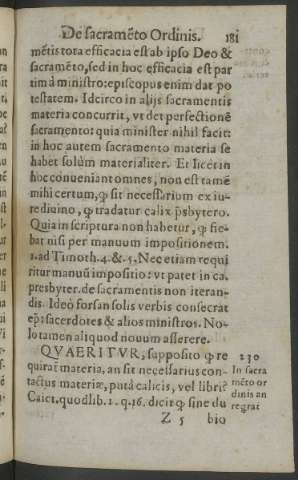 De sacramẽto Ordinis. 181
mẽtis tota efficacia est ab ipso Deo &
sacramẽto, sed in hoc efficacia est par
tim à ministro: episcopus enim dat po
testatem. Idcirco in alijs sacramentis
materia concurrit, vt det perfectionẽ
sacramento: quia minister nihil facit:
in hoc autem sacramento materia se
habet solùm materialiter. Et licèt in
hoc conueniant omnes, non est tamẽ
mihi certum, ꝙ sit necessarium ex iu-
re diuino, ꝙ tradatur calix p̃sbytero.
Quia in scriptura non habetur, ꝙ fie-
bat nisi per manuum impositionem.
1. ad Timoth. 4. & 5. Nec etiam requi
ritur manuũ impositio: vt patet in ca.
presbyter. de sacramentis non iteran-
dis. Ideò forsan solis verbis consecrat
ep̃: sacerdotes & alios ministros. No-
lo tamen aliquod nouum asserere.
QVAERITVR, supposito ꝙ re
quirat materia, an sit necessarius con-
tactus materiæ, putà calicis, vel libri?
Caiet. quodlib. 1. q. 16. dicit ꝙ sine du
Z 5 bio
230
In sacra
mẽto or
dinis an
regrat